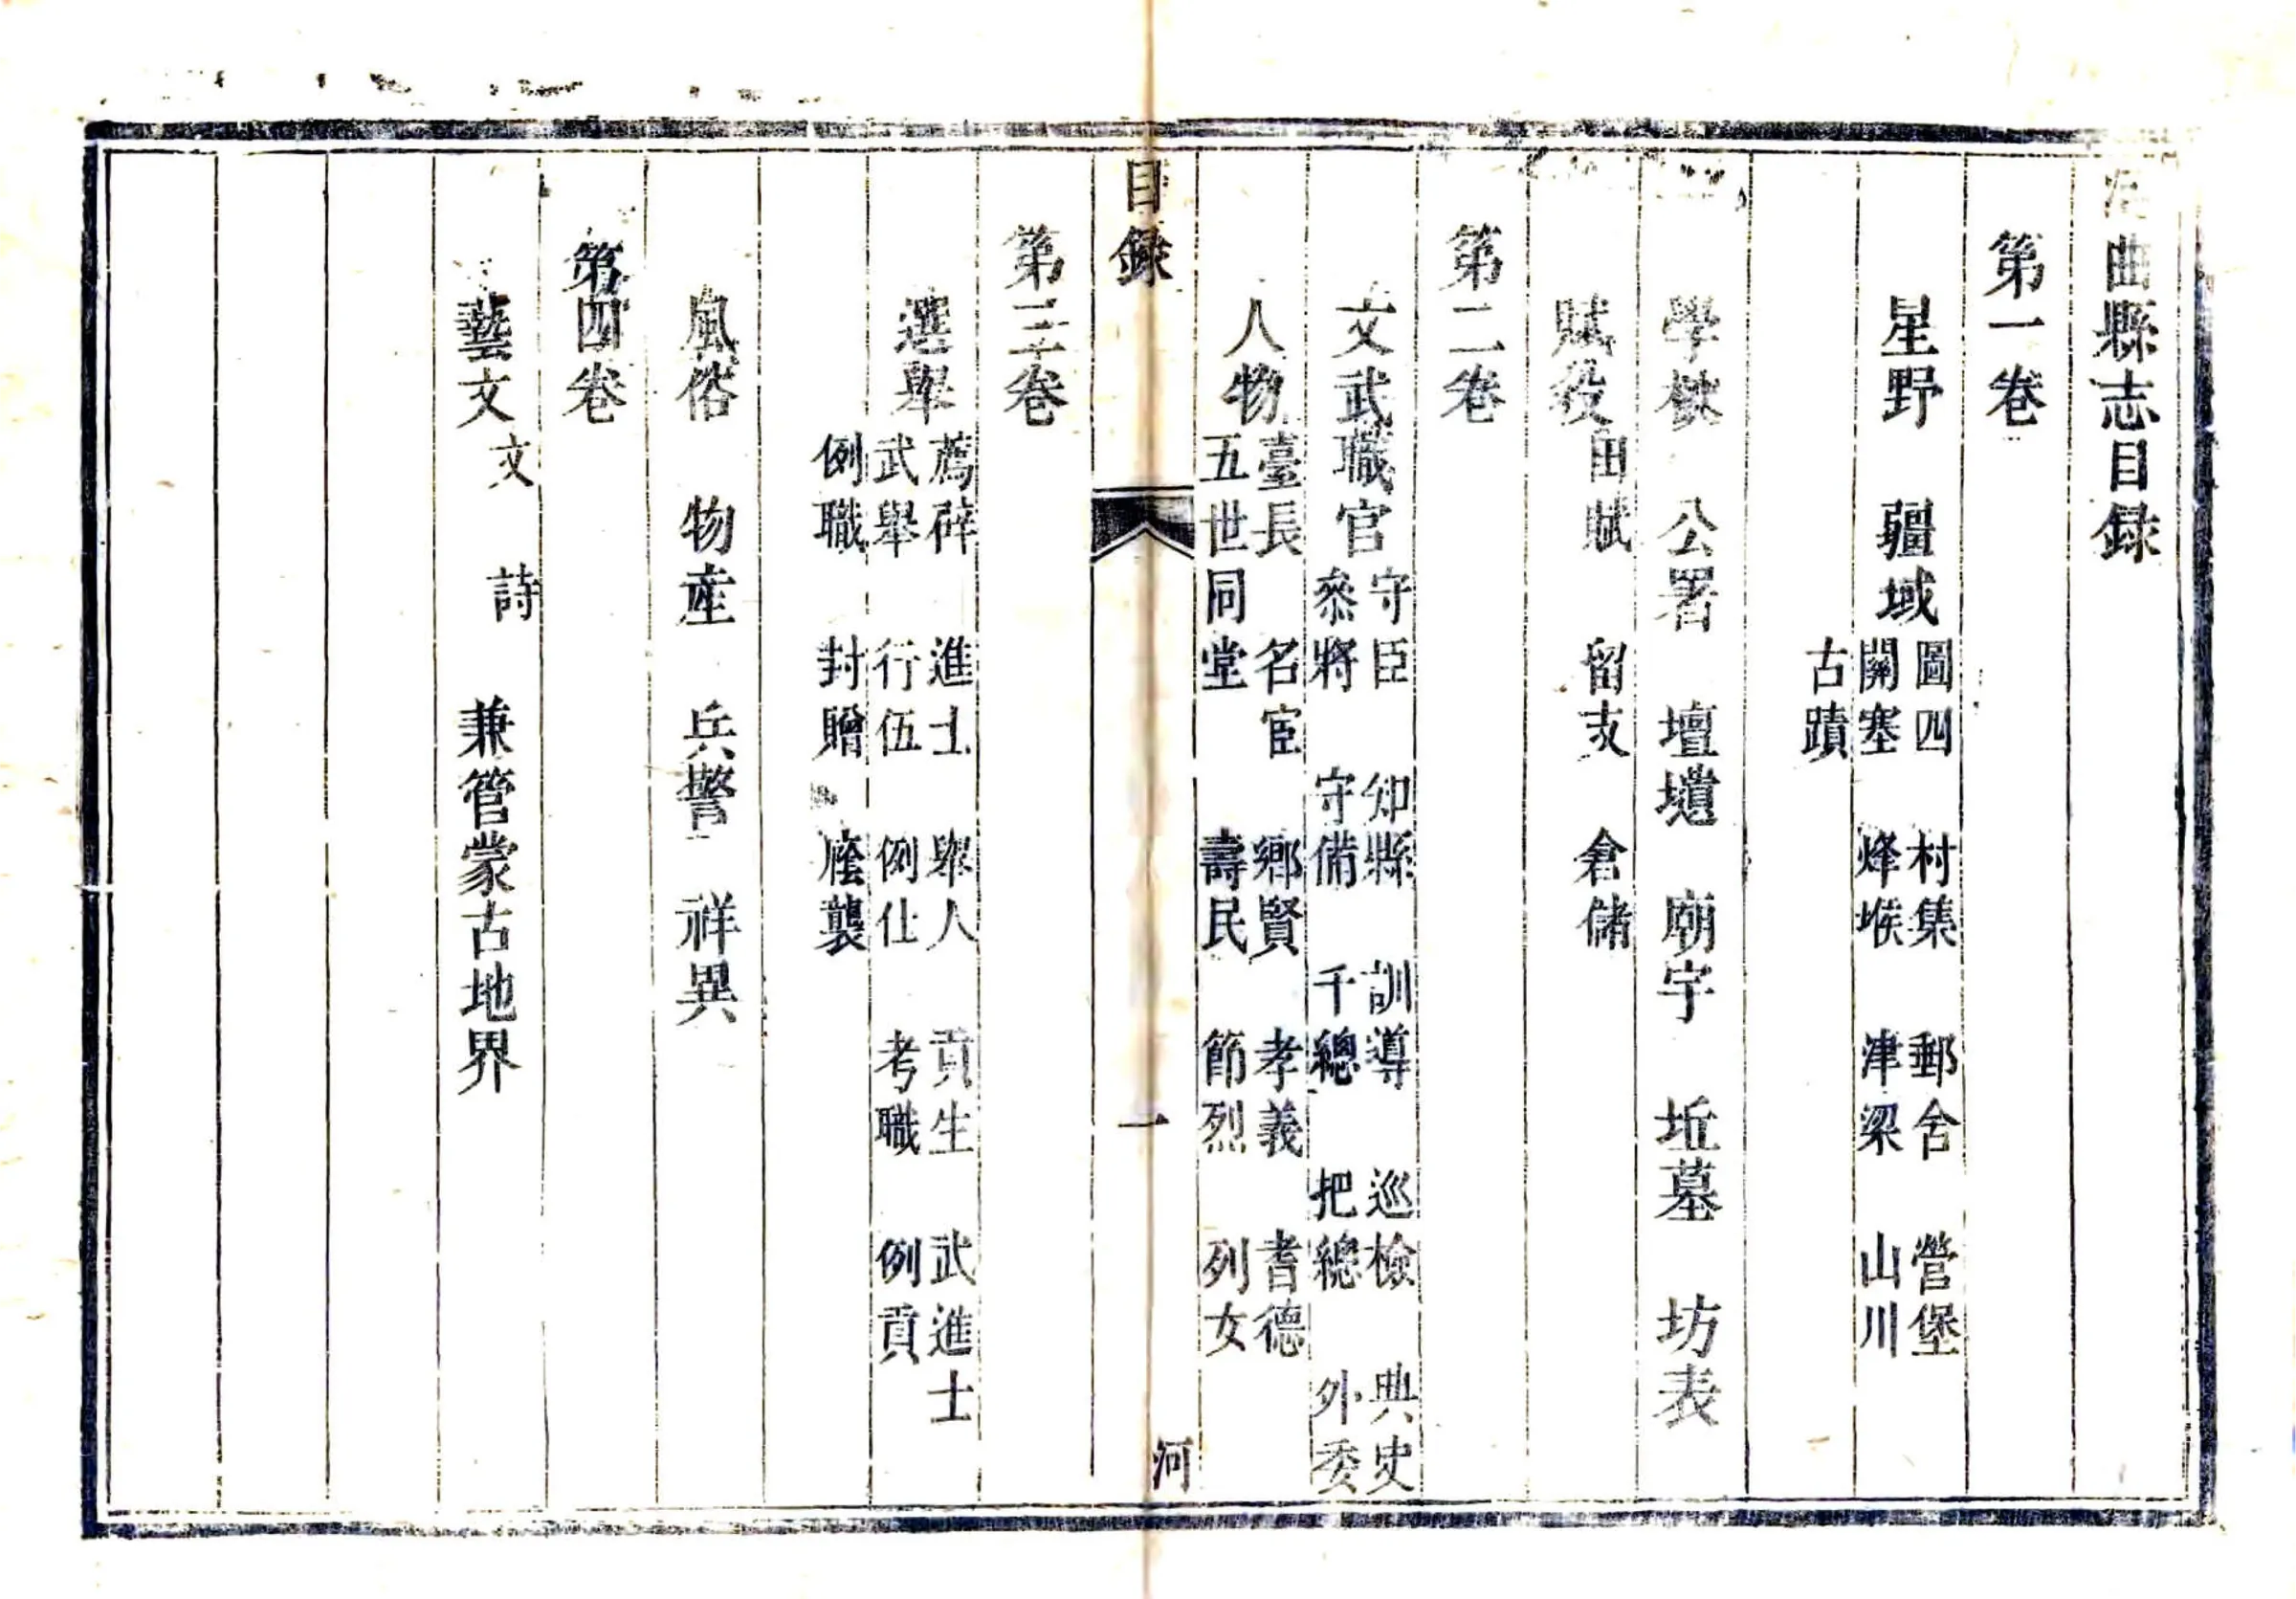 河曲縣志目録
第一卷
星野 疆域 圖四 村集 郵舍 營堡
關塞 烽堠 津梁 山川
古蹟
學校 公署 壇壝 廟宇 坵墓 坊表
賦役 田賦 留支 倉儲
第二卷
文武職官 守臣 知縣 訓導 巡檢 典史
叅將 守備 千總 把總 外委
人物 臺長 名宦 鄉賢 孝義 耆德
五世同堂 壽民 節烈 列女
目録 一 河
第三卷
選舉 薦辟 進士 舉人 貢生 武進士
武舉 行伍 例仕 考職 例貢
例職 封贈 廕襲
風俗 物産 兵警 祥異
第四卷
藝文 文 詩 兼管蒙古地界